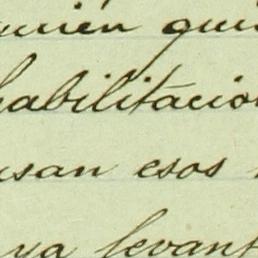 quié
habilitacio
usan esos
ya levant